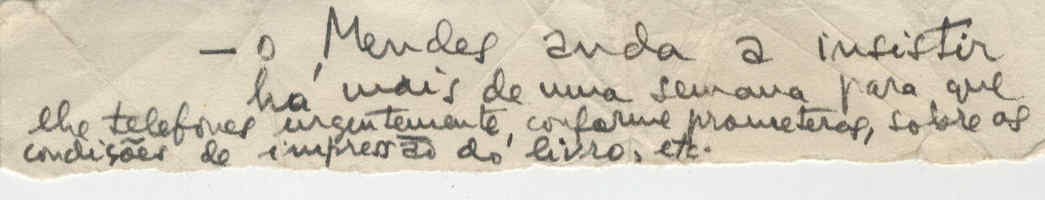 — o Mendes anda a insistir
há mais de uma semana para que
lhe telefones urgentemente, conforme prometeras, sobre as
condições de impressão do livro, etc.